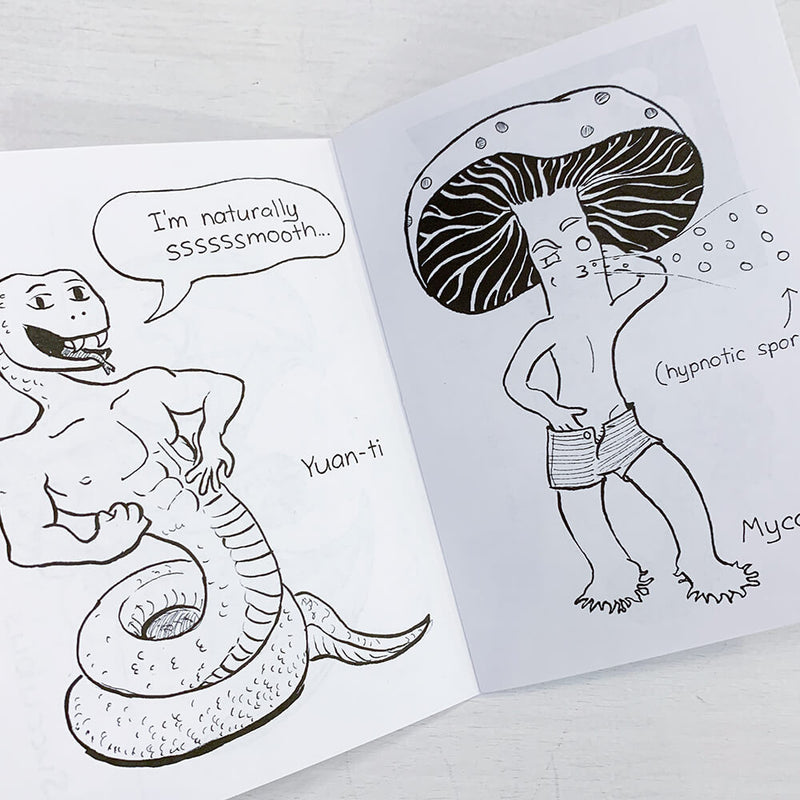 I'm naturally
ssssssmooth...
Yuan-ti
(hypnotic spor
Myco